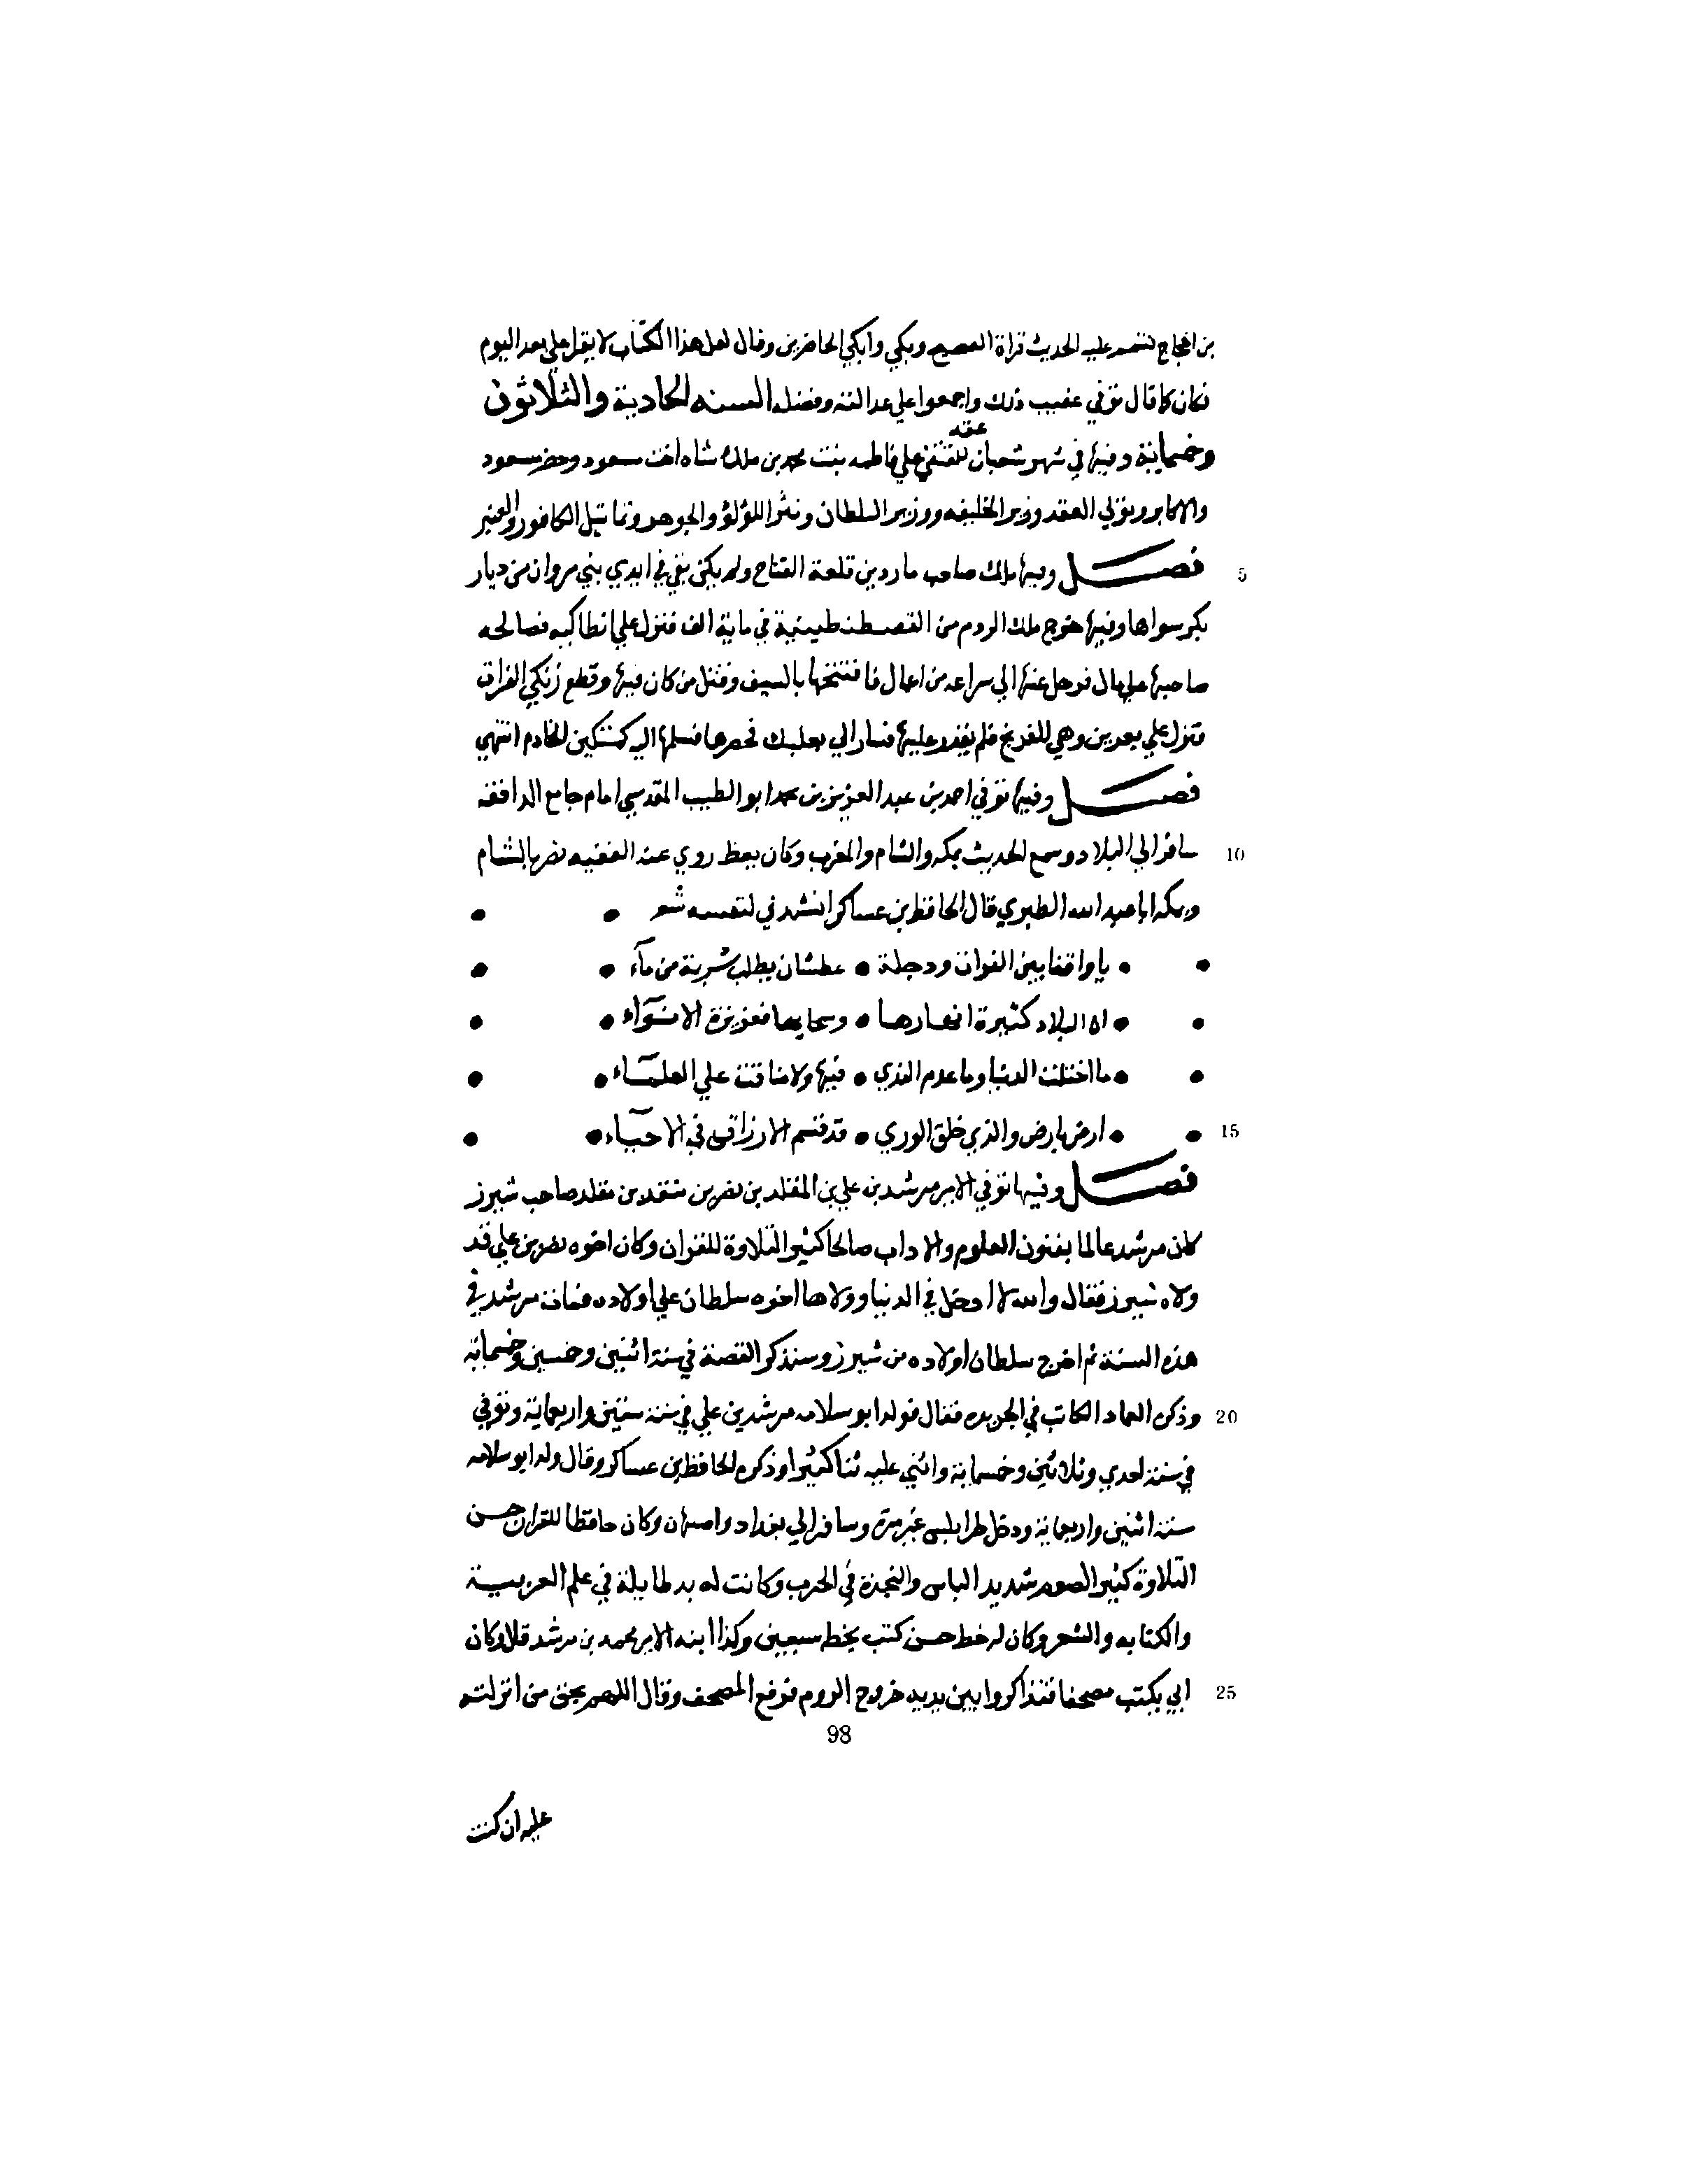 بن الحجاج عليه الحديث قراة الفصيح وبكي وابكي الحاضرين وقال لعل هذا الكتاب لا يقرا علي بعد اليوم
فكان كما قال توفي عقيب ذلك واجمعوا علي عدالته وفضله السنه الحادية والثلاثون
عقد
وخمسماية وفيها في شهر شعبان للمقتفي علي فاطمه بنت محمد بن ملك شاه اخت مسعود وحضر مسعود
والاكابر وتولي العقد وزير الخليفه ووزير السلطان ونثر اللؤلؤ والجوهر وتماثيل الكافور والعنبر
5 فصل وفيها ملك صاحب ماردين قلعة الهتاخ ولم يكن بقي في ايدي بني مروان من ديار
بكر سواها وفيها خرج ملك الروم من القسطنطينية في ماية الف فنزل علي انطاكيه فصالحه
صاحبها علي مال فرحل عنها الي بزاعه من اعمال فافتتحها بالسيف وقتل من كان فيها وقطع زنكي الفرات
فنزل علي بعرين وهي للفرنج فلم يقدر عليها فسار الي بعلبك فحصرها فسلمها اليه كمشتكين الخادم انتهي
فصل وفيها توفي احمد بن عبد العزيز بن محمد ابو الطيب المقدسي امام جامع الرافقه
10 سافر الي البلاد وسمع الحديث بمكه والشام والمغرب وكان يعظ روي عنه الفقيه نصر بالشام
وبمكه ابا عبد الله الطبري قال الحافظ بن عساكر انشدني لنفسه شعر
يا واقفا بين الفرات ودجلة • عطشان يطلب شربة من مآء
ان البلاد كثيرة انهارها • وسحابها فغزيزة الانوآء
ما اختلت الدنيا وما عدم الندي • فيها ولا ضاقت علي العلمآء
15 ارض بارض والذي خلق الوري • قد قسم الارزاق في الاحيآء
فصل وفيها توفي الامير مرشد بن علي بن المقلد بن نصر بن منقذ بن مقلد صاحب شيزر
كان مرشد عالما بفنون العلوم والاداب صالحا كثير التلاوة للقران وكان اخوه نصر بن علي قد
ولاه شيزر فقال والله لا ادخل في الدنيا وولاها اخوه سلطان علي اولاده فمات مرشد في
هذه السنة ثم اخرج سلطان اولاده من شيزر وسنذكر القصة في سنة اثنين وخمسين وخمسماية
20 وذكره العماد الكاتب في الجريده فقال مولد ابو سلامه مرشد بن علي في سنة ستين واربعماية وتوفي
في سنة احدي وثلاثين وخمسماية واثني عليه ثنا كثيرا وذكره الحافظ بن عساكر وقال ولد ابو سلامه
سنة اثنين واربعماية ودخل طرابلس غير مرة وسافر الي بغداد واصبهان وكان حافظا للقران حسن
التلاوة كثير الصوم شديد الباس والنجدة في الحرب وكانت له يد طايلة في علم العربيـة
والكتابه والشعر وكان له خط حسن كتب بخطه سبعين وكذا ابنه الامير محمد بن مرشد قال وكان
25 ابي يكتب مصحفا فتذاكروا بين يديه خروج الروم فرفع المصحف وقال اللهم بحق من انزلته
98
عليه ان كنت